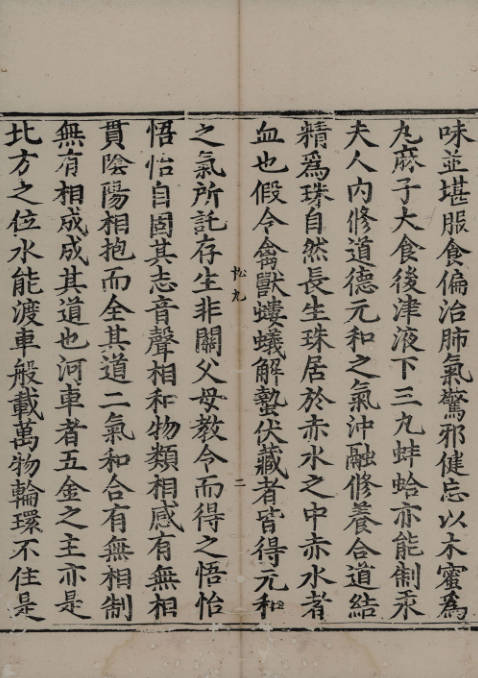 味並堪服食偏治肺氣驚邪健忘以木蜜為
丸麻子大食後津液下三九蚌蛤亦能制汞
夫人內修道德元和之氣沖融修養合道結
精為珠自然長生珠居於赤水之中赤水者
血也假令禽獸螻蟻解蟄伏藏者皆得元和
松九
二
之氣所託存生非關父母教令而得之悟怡
悟怡自固其志音聲相和物類相感有無相
貫陰陽相抱而全其道二氣和合有無相制
無有相成成其道也河車者五金之主亦是
北方之位水能渡車般載萬物輪環不住是